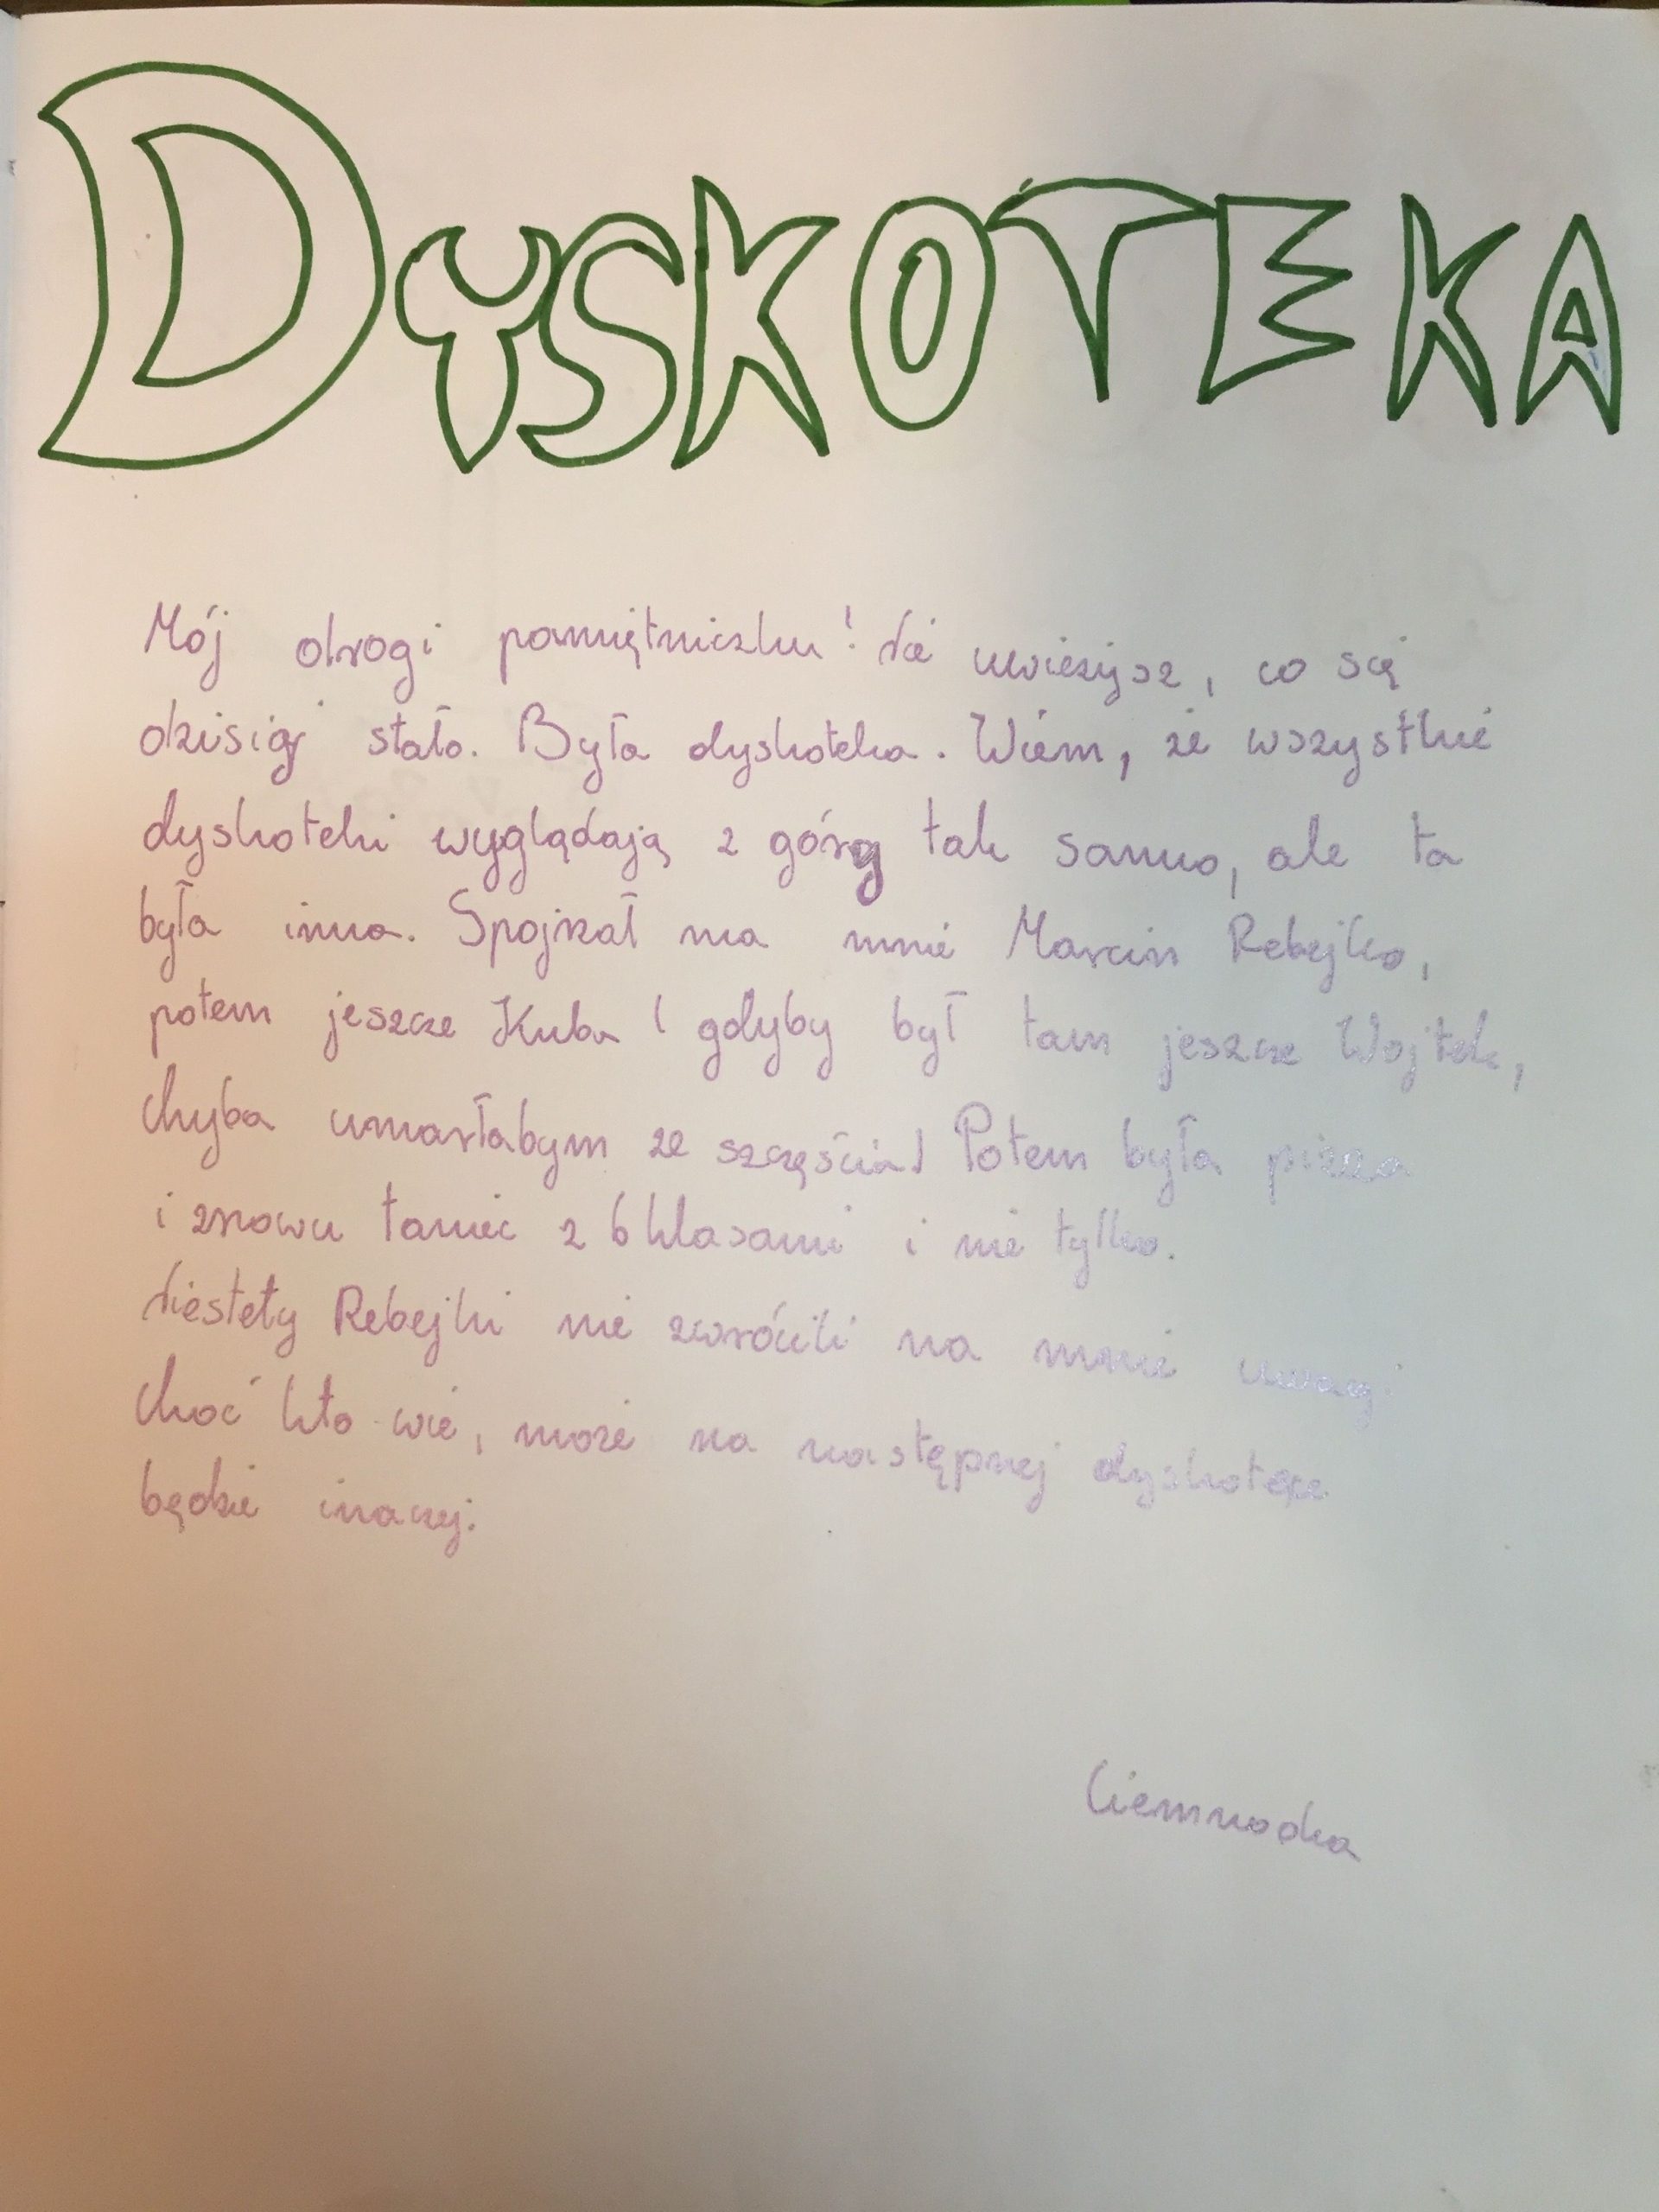 DYSKOTEKA
Mój drogi pamiętniczku! Nie uwieżysz, co się
dzisiaj stało. Była dyskoteka. Wiem, że wszystkie
dyskoteki wyglądają z góry tak samo, ale ta
była inna. Spojrzał na mnie Marcin Rebejko,
potem jeszcze Kuba (gdyby był tam jeszcze Wojtek,
chyba umarłabym ze szczęścia) Potem była pizza
i znowu taniec z 6 klasami i nie tylko.
Niestety Rebejki nie zwrócili na mnie uwagi
choć kto wie, może na następnej dyskotece
będzie inaczej.
Ciemnodka